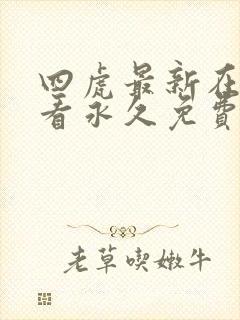 四虎最新在
看永久免費
老草喫嫩牛